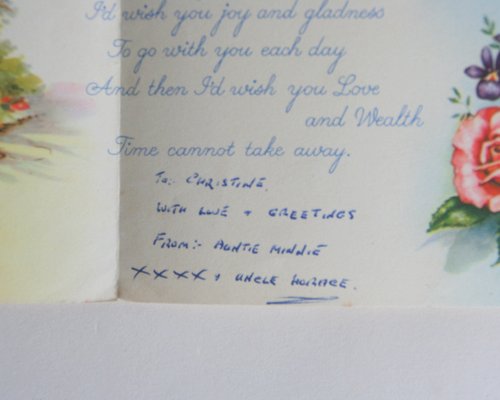 I'd wish you joy and gladness
To go with you each day
And then I'd wish you Love
and Wealth
Time cannot take away.
To:- CHRISTINE.
WITH LOVE + GREETINGS
FROM:- AUNTIE MINNIE
XXXX + UNCLE HORACE.